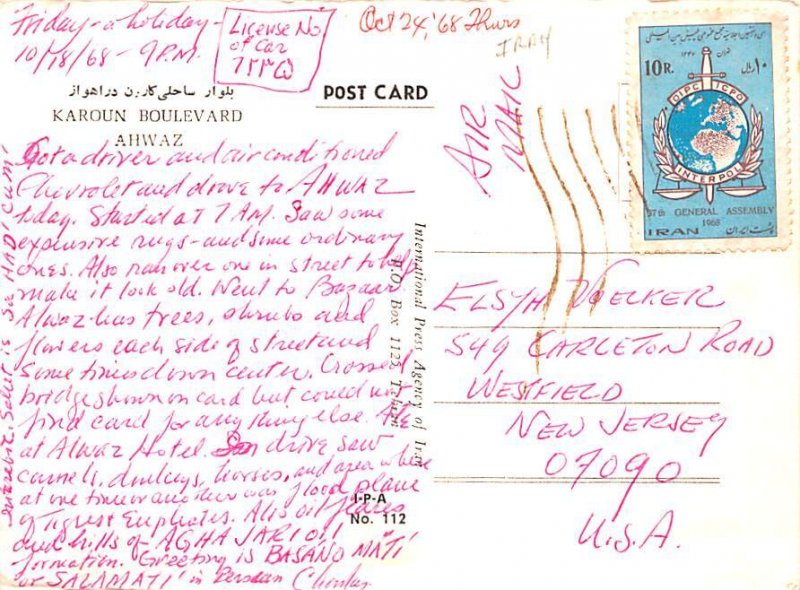 Friday - a holiday -
10/18/68 - 9 P.M.
License No.
of Car
۶۲۳۵
Oct 24, '68 Thurs
IRAN
بلوار ساحلی کارون در اهواز
KAROUN BOULEVARD
AHWAZ
POST CARD
AIR
MAIL
Got a driver and air conditioned
Chevrolet and drove to AHWAZ
today. Started at 7 AM. Saw some
expensive rugs - and some ordinary
ones. Also ran over one in street to help
make it look old. Went to Bazaar
Ahwaz has trees, shrubs and
flowers each side of street and
sometimes down center. Crossed
bridge shown on card but could not
find card for anything else. Ate
at Ahwaz Hotel. On drive saw
camels, donkeys, horses, and area where
at one time or another was flood plane
of Tigris & Euphrates. Also oil flares
and hills of AGHA JARI oil
formation. Greeting is BASANO MATI
or SALAMATI in Persian Charles
In Arabic, Salut is SA HADICUM!
International Press Agency of Iran
P.O. Box 1122 Tehran
I-P-A
No. 112
۱۳۴۷
10 R.
۱۰ ریال
OIPC ICPO
INTERPOL
37th GENERAL ASSEMBLY
1968
IRAN
پست ایران
ELSYH VOELKER
549 CARLETON ROAD
WESTFIELD
NEW JERSEY
07090
U.S.A.